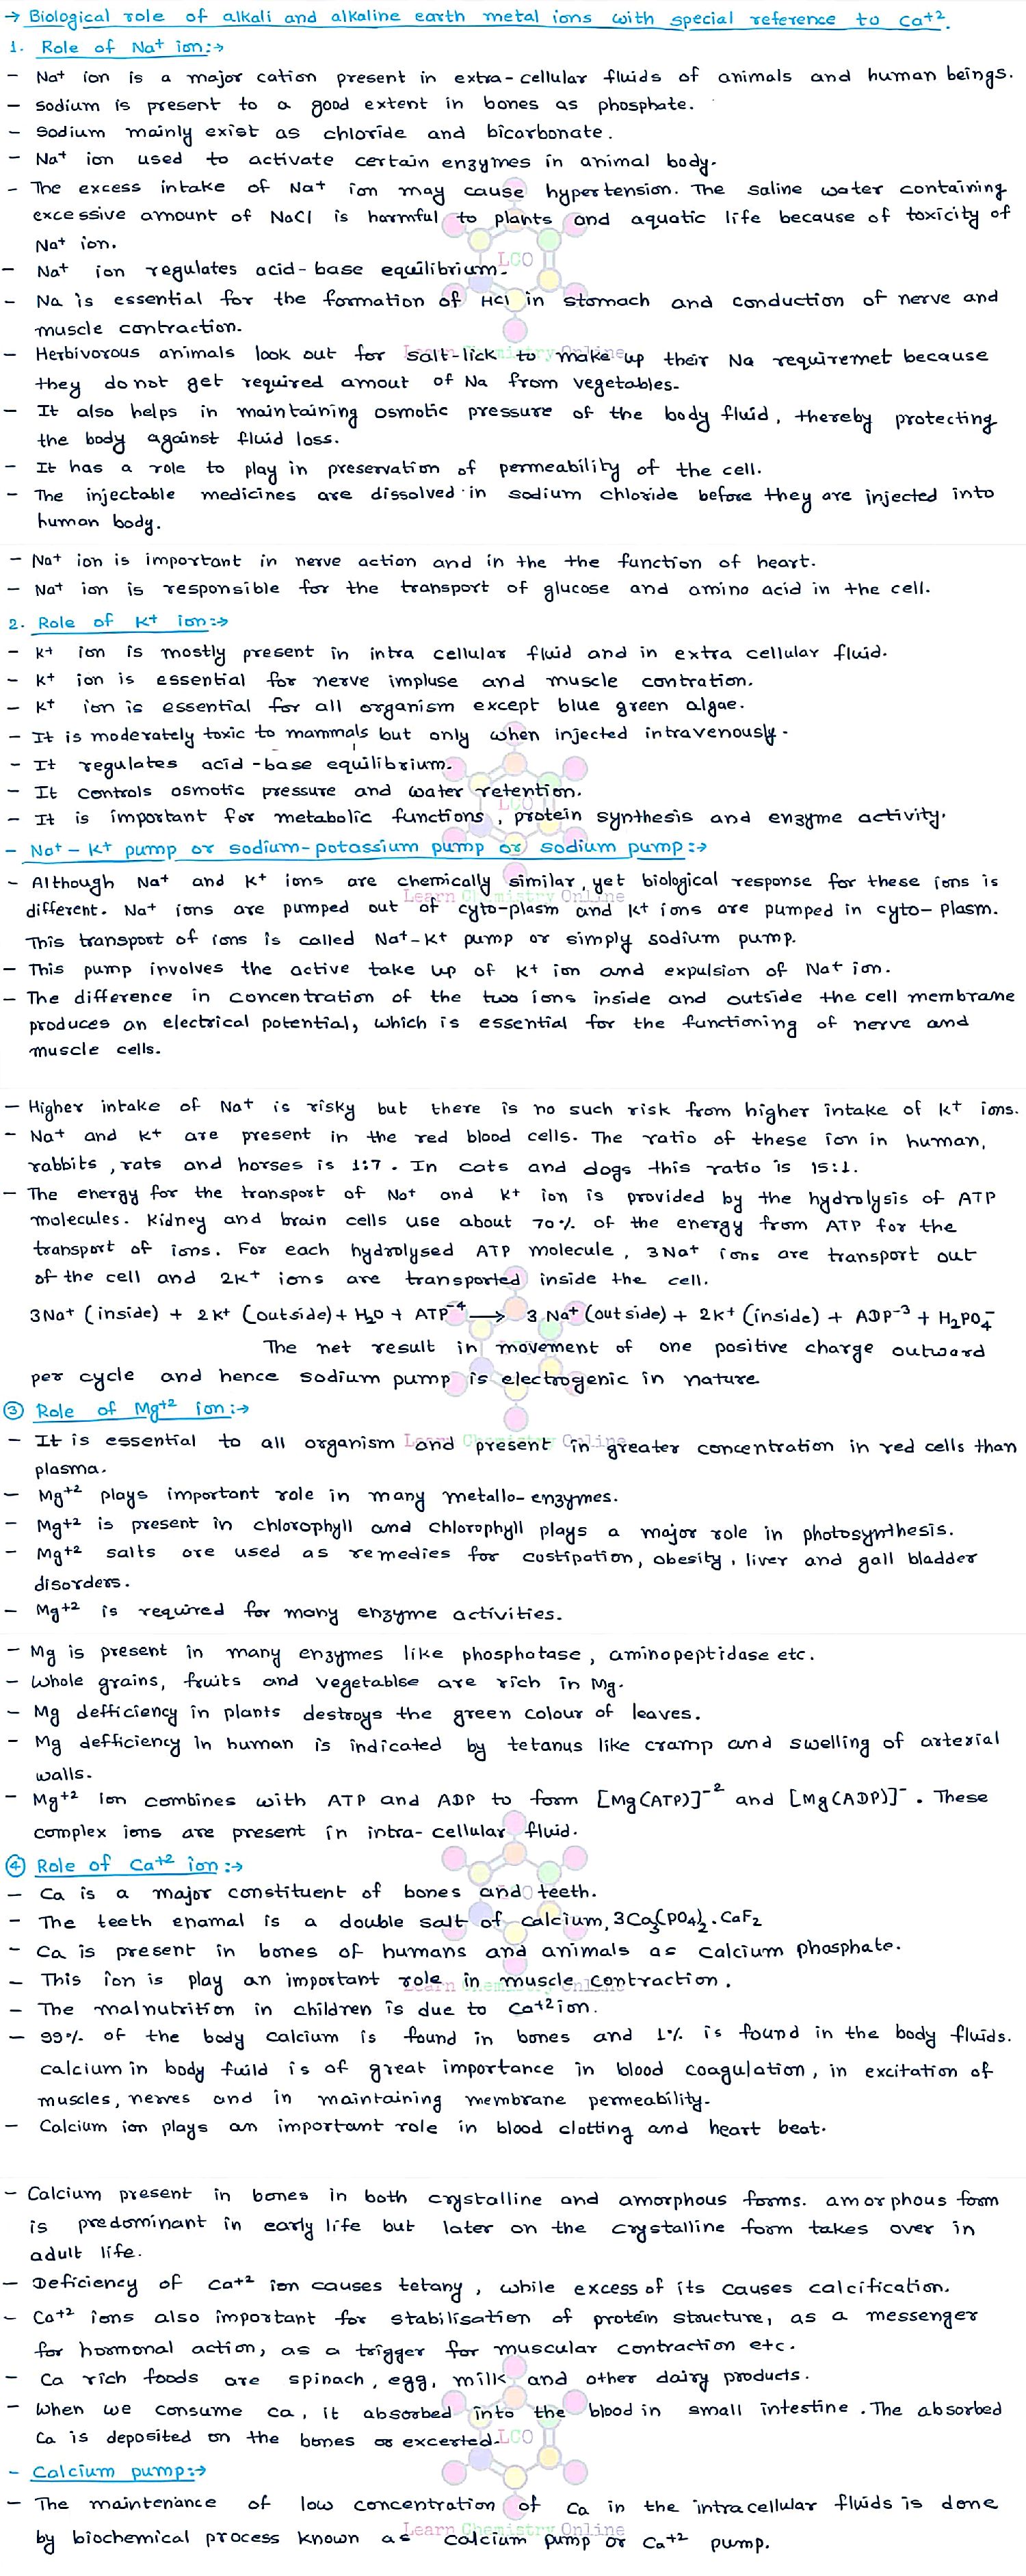 → Biological role of alkali and alkaline earth metal ions with special reference to Ca+2.
1. Role of Na+ ion:→
- Na+ ion is a major cation present in extra-cellular fluids of animals and human beings.
- sodium is present to a good extent in bones as phosphate.
- Sodium mainly exist as chloride and bicarbonate.
- Na+ ion used to activate certain enzymes in animal body.
- The excess intake of Na+ ion may cause hypertension. The saline water containing
excessive amount of NaCl is harmful to plants and aquatic life because of toxicity of
Na+ ion.
- Na+ ion regulates acid-base equilibrium.
- Na is essential for the formation of HCl in stomach and conduction of nerve and
muscle contraction.
- Herbivorous animals look out for salt-lick to make up their Na requiremet because
they do not get required amout of Na from vegetables.
- It also helps in maintaining osmotic pressure of the body fluid, thereby protecting
the body against fluid loss.
- It has a role to play in preservation of permeability of the cell.
- The injectable medicines are dissolved in sodium chloride before they are injected into
human body.
- Na+ ion is important in nerve action and in the the function of heart.
- Na+ ion is responsible for the transport of glucose and amino acid in the cell.
2. Role of K+ ion:→
- K+ ion is mostly present in intra cellular fluid and in extra cellular fluid.
- K+ ion is essential for nerve impluse and muscle contration.
- K+ ion is essential for all organism except blue green algae.
- It is moderately toxic to mammals but only when injected intravenously.
- It regulates acid-base equilibrium.
- It controls osmotic pressure and water retention.
- It is important for metabolic functions, protein synthesis and enzyme activity.
- Na+-K+ pump or sodium-potassium pump or sodium pump:→
- Although Na+ and K+ ions are chemically similar, yet biological response for these ions is
different. Na+ ions are pumped out of cyto-plasm and K+ ions are pumped in cyto-plasm.
This transport of ions is called Na+-K+ pump or simply sodium pump.
- This pump involves the active take up of K+ ion and expulsion of Na+ ion.
- The difference in concentration of the two ions inside and outside the cell membrane
produces an electrical potential, which is essential for the functioning of nerve and
muscle cells.
- Higher intake of Na+ is risky but there is no such risk from higher intake of K+ ions.
- Na+ and K+ are present in the red blood cells. The ratio of these ion in human,
rabbits, rats and horses is 1:7. In cats and dogs this ratio is 15:1.
- The energy for the transport of Na+ and K+ ion is provided by the hydrolysis of ATP
molecules. Kidney and brain cells use about 70% of the energy from ATP for the
transport of ions. For each hydrolysed ATP molecule, 3Na+ ions are transport out
of the cell and 2K+ ions are transported inside the cell.
3Na+ (inside) + 2K+ (outside) + H2O + ATP-4 → 3Na+ (outside) + 2K+ (inside) + ADP-3 + H2PO4-
The net result in movement of one positive charge outward
per cycle and hence sodium pump is electrogenic in nature
③ Role of Mg+2 ion:→
- It is essential to all organism and present in greater concentration in red cells than
plasma.
- Mg+2 plays important role in many metallo-enzymes.
- Mg+2 is present in chlorophyll and chlorophyll plays a major role in photosynthesis.
- Mg+2 salts are used as remedies for costipation, obesity, liver and gall bladder
disorders.
- Mg+2 is required for many enzyme activities.
- Mg is present in many enzymes like phosphotase, aminopeptidase etc.
- Whole grains, fruits and vegetablse are rich in Mg.
- Mg defficiency in plants destroys the green colour of leaves.
- Mg defficiency in human is indicated by tetanus like cramp and swelling of arterial
walls.
- Mg+2 ion combines with ATP and ADP to form [Mg(ATP)]-2 and [Mg(ADP)]-. These
complex ions are present in intra-cellular fluid.
④ Role of Ca+2 ion:→
- Ca is a major constituent of bones and teeth.
- The teeth enamal is a double salt of calcium, 3Ca3(PO4)2.CaF2
- Ca is present in bones of humans and animals as calcium phosphate.
- This ion is play an important role in muscle contraction.
- The malnutrition in children is due to Ca+2 ion.
- 99% of the body calcium is found in bones and 1% is found in the body fluids.
calcium in body fuild is of great importance in blood coagulation, in excitation of
muscles, nerves and in maintaining membrane permeability.
- Calcium ion plays an important role in blood clotting and heart beat.
- Calcium present in bones in both crystalline and amorphous forms. amorphous form
is predominant in early life but later on the crystalline form takes over in
adult life.
- Deficiency of Ca+2 ion causes tetany, while excess of its causes calcification.
- Ca+2 ions also important for stabilisation of protein structure, as a messenger
for hormonal action, as a trigger for muscular contraction etc.
- Ca rich foods are spinach, egg, milk and other dairy products.
- When we consume ca, it absorbed into the blood in small intestine. The absorbed
Ca is deposited on the bones or excerted.
- Calcium pump:→
- The maintenance of low concentration of Ca in the intracellular fluids is done
by biochemical process known as calcium pump or Ca+2 pump.
LCO
Learn Chemistry Online